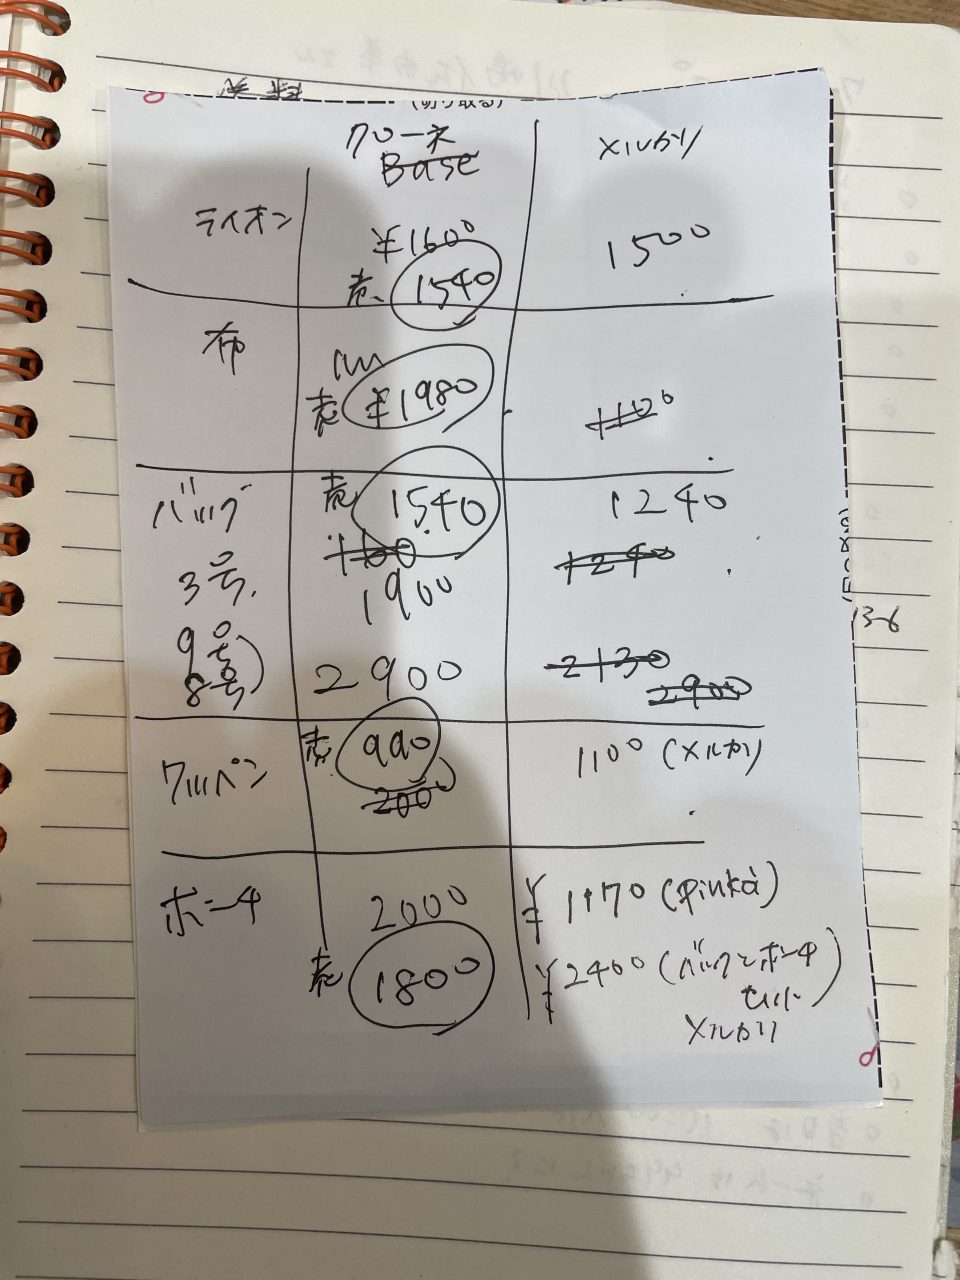 (切り取る)
クローネ
Base
メルカリ
ライオン
¥1600
売 1540
1500
布
1m
売 ¥1980
1100
バッグ
売 1540
1240
3号
1900
1240
9号
8号)
2900
2130
2900
ワッペン
売 990
200
1100 (メルカリ)
ポーチ
2000
売 1800
¥1170 (pinkå)
¥2400 (バックとポーチ
セット)
メルカリ
13-6